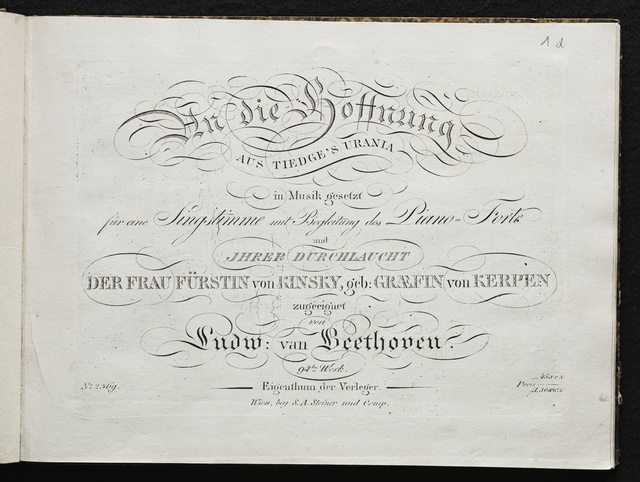 1 d
An die Hoffnung
AUS TIEDGE'S URANIA
in Musik gesetzt
für eine Singstimme mit Begleitung des Piano-Forte
und
JHRER DURCHLAUCHT
DER FRAU FÜRSTIN von KINSKY, geb: GRÆFIN von KERPEN
zugeeignet
von
Ludw: van Beethoven.
94tes Werk.
No. 2369.
Eigenthum der Verleger.
Preis
Wien, bey S. A. Steiner und Comp.